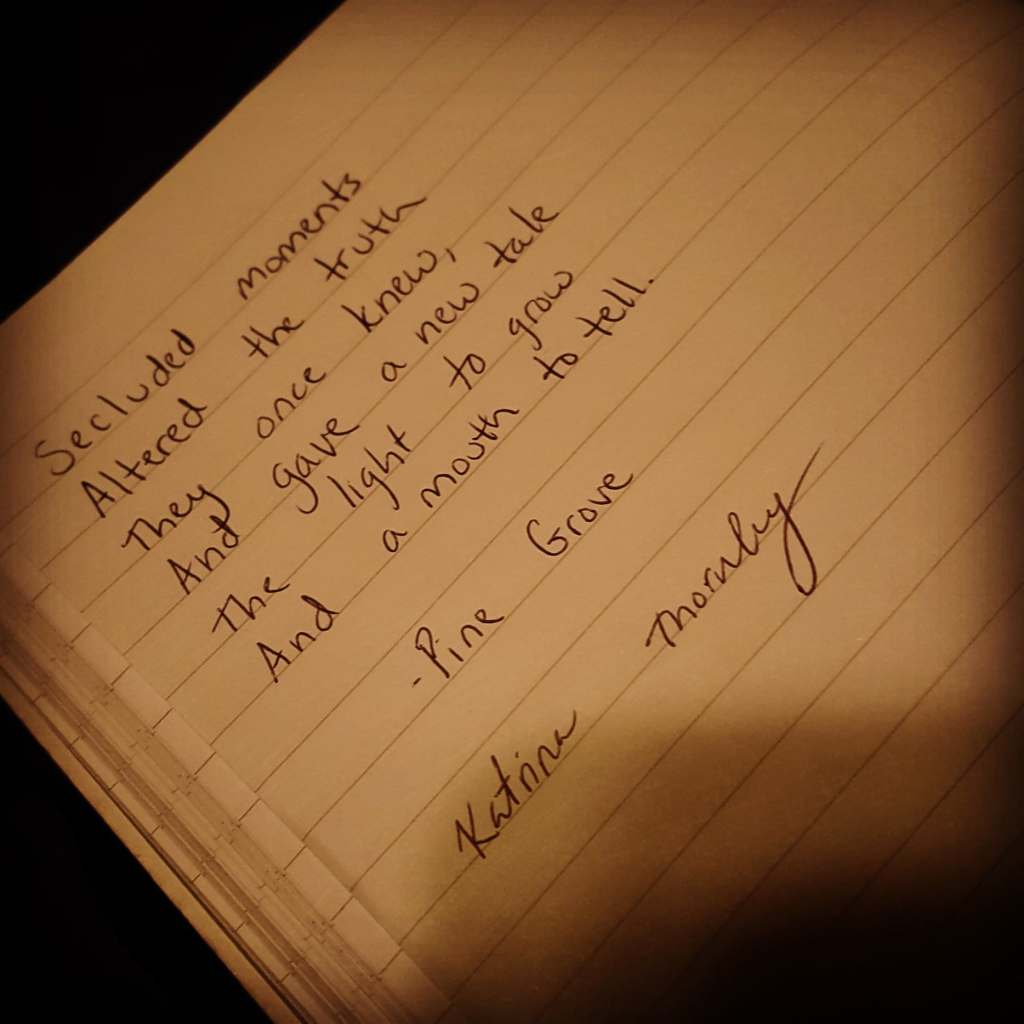 Secluded moments
Altered the truth
They once knew,
And gave a new tale
The light to grow
And a mouth to tell.
-Pine Grove
Katrina Thornby